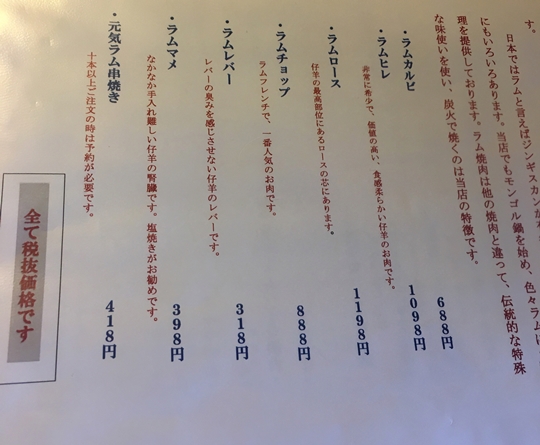 す。
日本ではラムと言えばジンギスカンが
にもいろいろあります。当店でもモンゴル鍋を始め、色々ラム
理を提供しております。ラム焼肉は他の焼肉と違って、伝統的な特殊
な味使いを使い、炭火で焼くのは当店の特徴です。
・ラムカルビ 688円
・ラムヒレ 1098円
非常に希少で、価値の高い、食感柔らかい仔羊のお肉です。
・ラムロース 1198円
仔羊の最高部位にあるロースの芯にあります。
・ラムチョップ 888円
ラムフレンチで、一番人気のお肉です。
・ラムレバー 318円
レバーの臭みを感じさせない仔羊のレバーです。
・ラムマメ 398円
なかなか手入れ難しい仔羊の腎臓です。塩焼きがお勧めです。
・元気ラム串焼き 418円
十本以上ご注文の時は予約が必要です。
全て税抜価格です